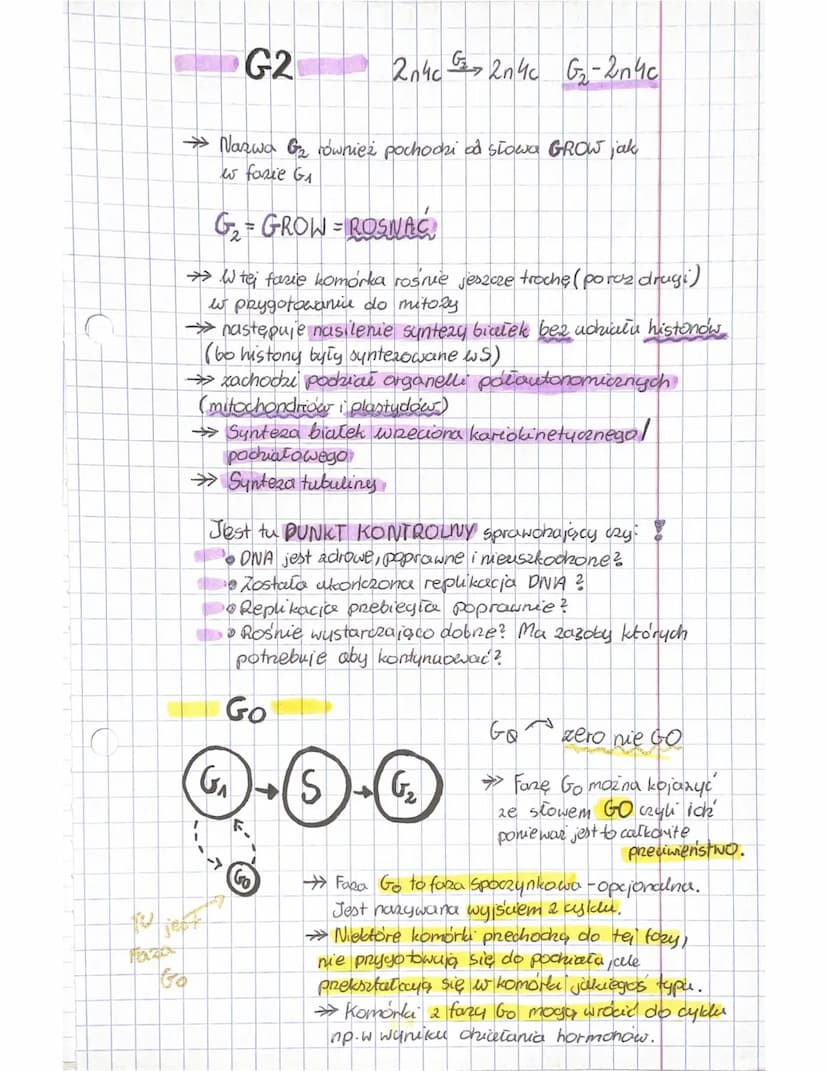 G2 2n4c G₂→ 2n4c G₂-2n4c
→» Nazwa G₂ również pochodzi od słowa GROW jak
w fazie G1
G₂ = GROW = ROSNĄĆ
→» W tej fazie komórka rośnie jeszcze trochę (po raz drugi)
w przygotowaniu do mitozy
→» następuje nasilenie syntezy białek bez udziału histonów
(bo histony były syntezowane w S)
→» zachodzi podział organelli półautonomicznych
(mitochondriów i plastydów)
→» Synteza białek wrzeciona kariokinetycznego/
podziałowego
→» Synteza tubuliny
Jest tu PUNKT KONTROLNY sprawdzający czy: !
• DNA jest zdrowe, poprawne i nieuszkodzone?
• Została ukończona replikacja DNA?
• Replikacja przebiegła poprawnie?
• Rośnie wystarczająco dobrze? Ma zasoby których
potrzebuje aby kontynuować?
G0
G0 → zero nie GO
G1 → S → G₂
G0
→» Fazę G0 można kojarzyć
ze słowem GO czyli iść
ponieważ jest to całkowite
przeciwieństwo.
→» Faza G0 to faza spoczynkowa - opcjonalna.
Jest nazywana wyjściem z cyklu.
TU jest
Faza
G0
→» Niektóre komórki przechodzą do tej fazy,
nie przygotowują się do podziału, ale
przekształcają się w komórki jakiegoś typu.
→» Komórki z fazy G0 mogą wrócić do cyklu
np. w wyniku działania hormonów.